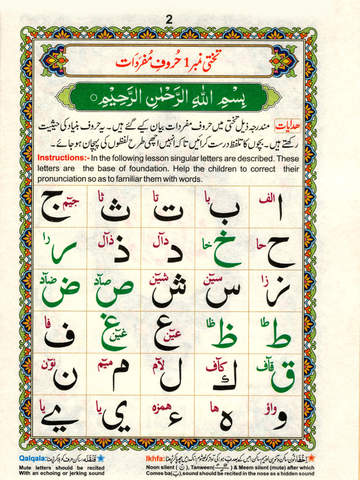 2
تختی نمبر 1 حروفِ مفردات
بِسْمِ اللهِ الرَّحْمٰنِ الرَّحِيْمِ
هدایات: مندرجہ ذیل تختی میں حروف مفردات بیان کیے گئے ہیں۔ یہ حروف بنیاد کی حیثیت
رکھتے ہیں۔ بچوں کا تلفظ درست کرائیں تاکہ انہیں اچھی طرح لفظوں کی پہچان ہو جائے۔
Instructions:- In the following lesson singular letters are described. These
letters are the base of foundation. Help the children to correct their
pronunciation so as to familiar them with words.
ا الف ب با ت تا ث ثا ج جیم
ح حا خ خا د دال ذ ذال ر را
ز زا س سین ش شین ص صاد ض ضاد
ط طا ظ ظا ع عین غ غین ف فا
ق قاف ك کاف ل لام م میم ن نون
و واؤ ه ها ء همزه ي یا ے یا
Qalqala:
Mute letters should be recited
With an echoing or jerking sound
Ikhfa:
Noon silent (نْ), Tanween & Meem silent (mute) after which
Comes ba(ب) sound should be recited in the nose as a hidden sound